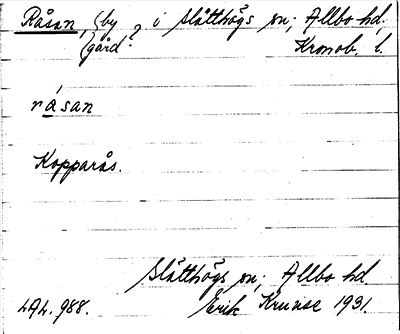 Råsan, (by gård?) i Slätthögs sn; Allbo hd.
Kronob. l.
råsan
Kopparås.
Slätthögs sn; Allbo hd.
LAL. 988. Erik Kruuse 1931.